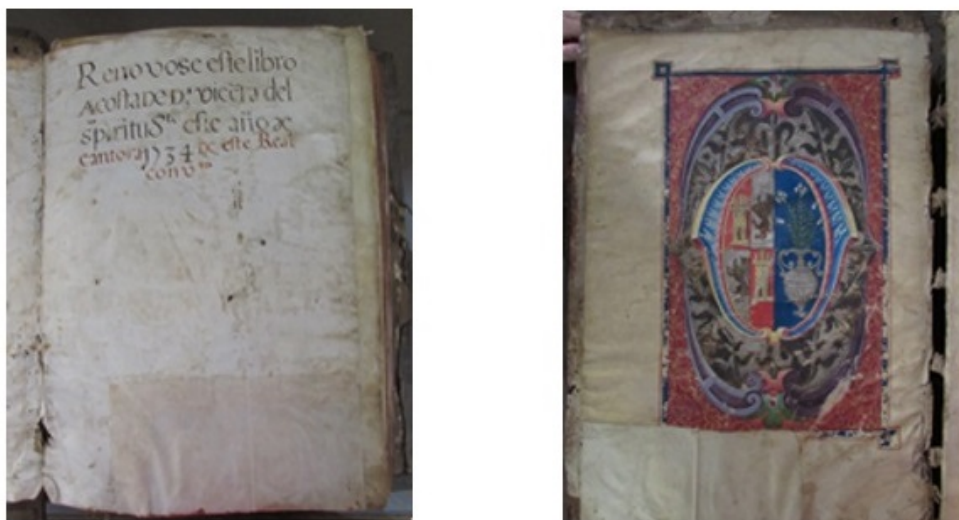 Renovose este libro
Acosta De D.ª vicēta del
spiritu S.to este año de
cantora 1734 de este Real
conv.to